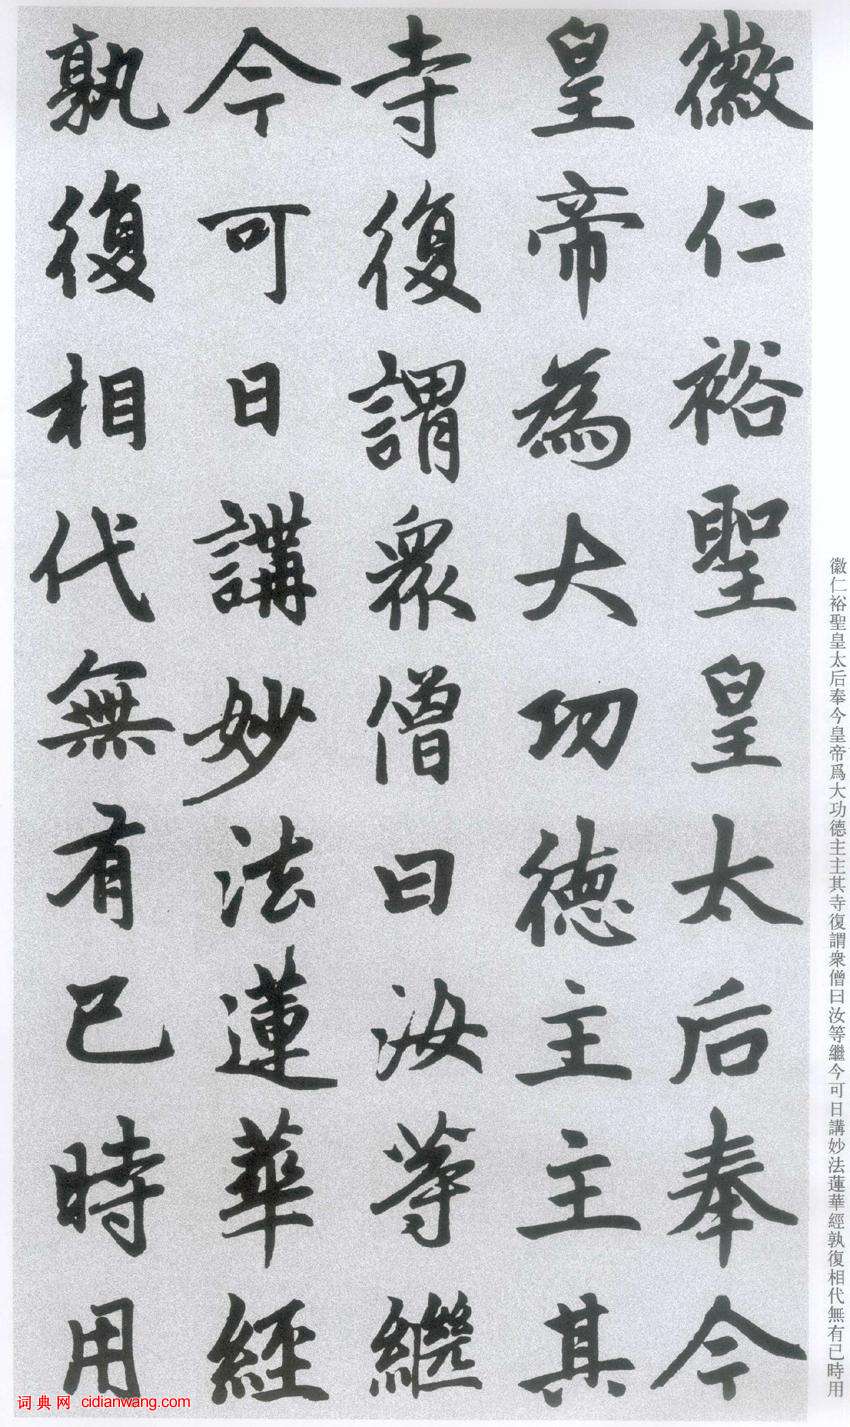 徽仁裕聖皇太后奉今
皇帝為大功德主主其
寺復謂衆僧曰汝等繼
今可日講妙法蓮華經
孰復相代無有已時用
徽仁裕聖皇太后奉今皇帝爲大功德主主其寺復謂衆僧曰汝等繼今可日講妙法蓮華經孰復相代無有已時用
词典网 cidianwang.com